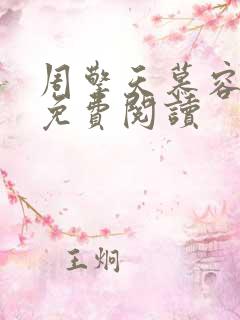 周擎天慕容
免費閱讀
王炯